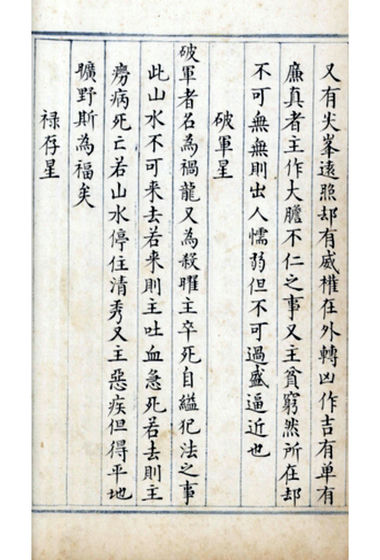 又有尖峯遠照却有威權在外轉凶作吉有单有
廉真者主作大膽不仁之事又主貧窮然所在却
不可無無則出人懦弱但不可過盛逼近也
破軍星
破軍者名為禍龍又為殺曜主卒死自縊犯法之事
此山水不可来去若来則主吐血急死若去則主
癆病死亡若山水停住清秀又主惡疾但得平地
曠野斯為福矣
禄存星